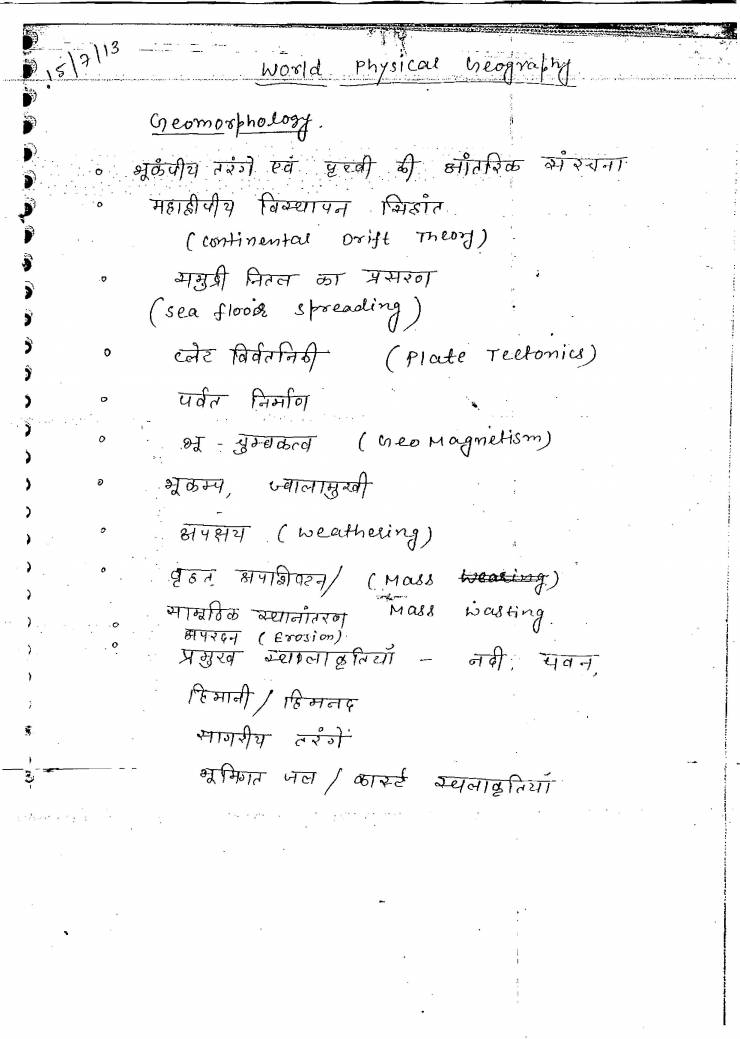 15/7/13
World Physical Geography
Geomorphology.
भूकंपीय तरंगे एवं पृथ्वी की आंतरिक संरचना
महाद्वीपीय विस्थापन सिद्धांत
(Continental Drift Theory)
समुद्री नितल का प्रसरण
(Sea floor spreading)
प्लेट विर्वतनिकी (Plate Tectonics)
पर्वत निर्माण
भू - चुम्बकत्व (Geo Magnetism)
भूकम्प, ज्वालामुखी
अपक्षय (Weathering)
वृहत अपाशिपटन/ (Mass wearing)
सामूहिक स्थानांतरण Mass wasting.
अपरदन (Erosion)
प्रमुख स्थालाकृतियाँ - नदी, पवन,
हिमानी / हिमनद
सागरीय तरंगें
भूमिगत जल / कार्स्ट स्थलाकृतियाँ